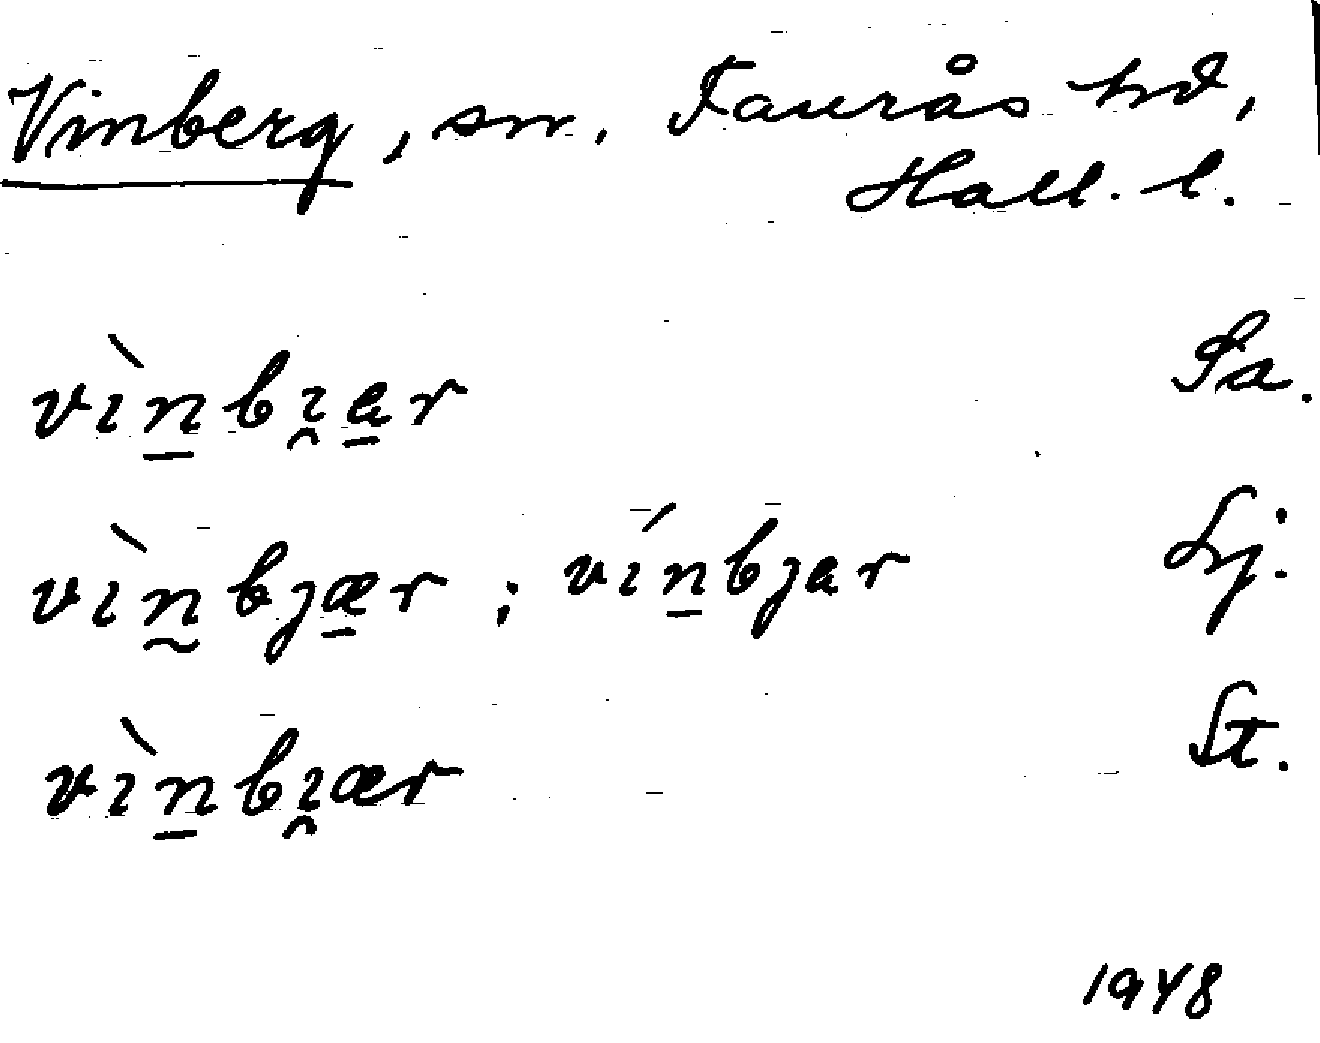 Vinberg, sn. Faurås hd,
Hall. l.
vìn̲bı̯a̲r Sa.
vìn̰bȷæ̲r ; vín̲bȷar Lj.
vìn̲bı̯ær St.
1948